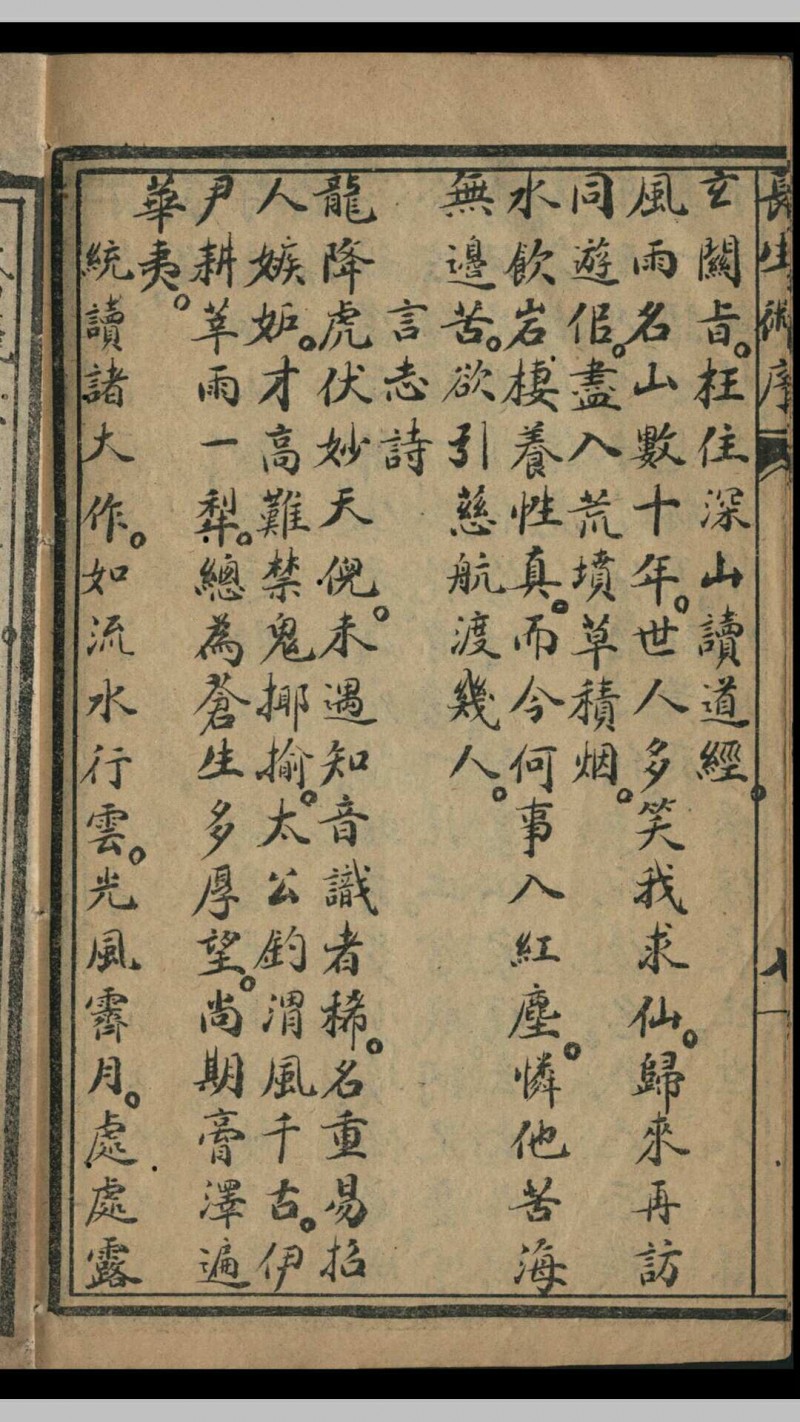 長生術序
玄關旨。枉住深山讀道經。
風雨名山數十年。世人多笑我求仙。歸來再訪
同遊侶。盡入荒墳草積烟。
水飲岩棲養性真。而今何事入紅塵。憐他苦海
無邊苦。欲引慈航渡幾人。
言志詩
龍降虎伏妙天倪。未遇知音識者稀。名重易招
人嫉妒。才高難禁鬼揶揄。太公釣渭風千古。伊
尹耕莘雨一犁。總為蒼生多厚望。尚期膏澤遍
華夷。
統讀諸大作。如流水行雲。光風霽月。處處露